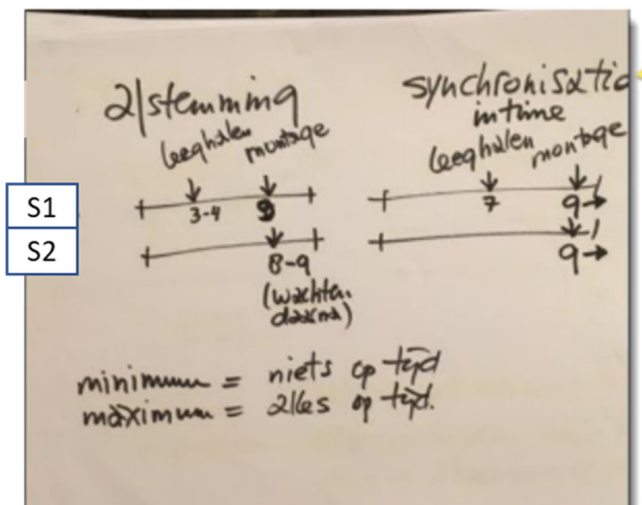 afstemming
leeghalen montage
S1
3-4 9
S2
8-9
(wachten
daarna)
synchronisatie
in time
leeghalen montage
7 9→
9→
minimum = niets op tijd
maximum = alles op tijd.